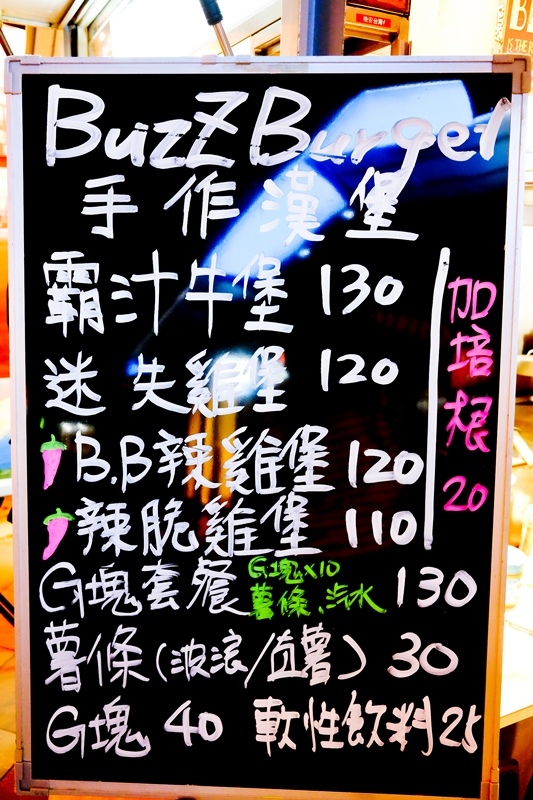 BuzzBurger
手作漢堡
霸汁牛堡 130
迷失雞堡 120
B.B辣雞堡 120
辣脆雞堡 110
加培根 20
G塊套餐 G塊x10 130
薯條、汽水
薯條(波浪/直薯) 30
G塊 40 軟性飲料 25
晚安台灣
IS THE